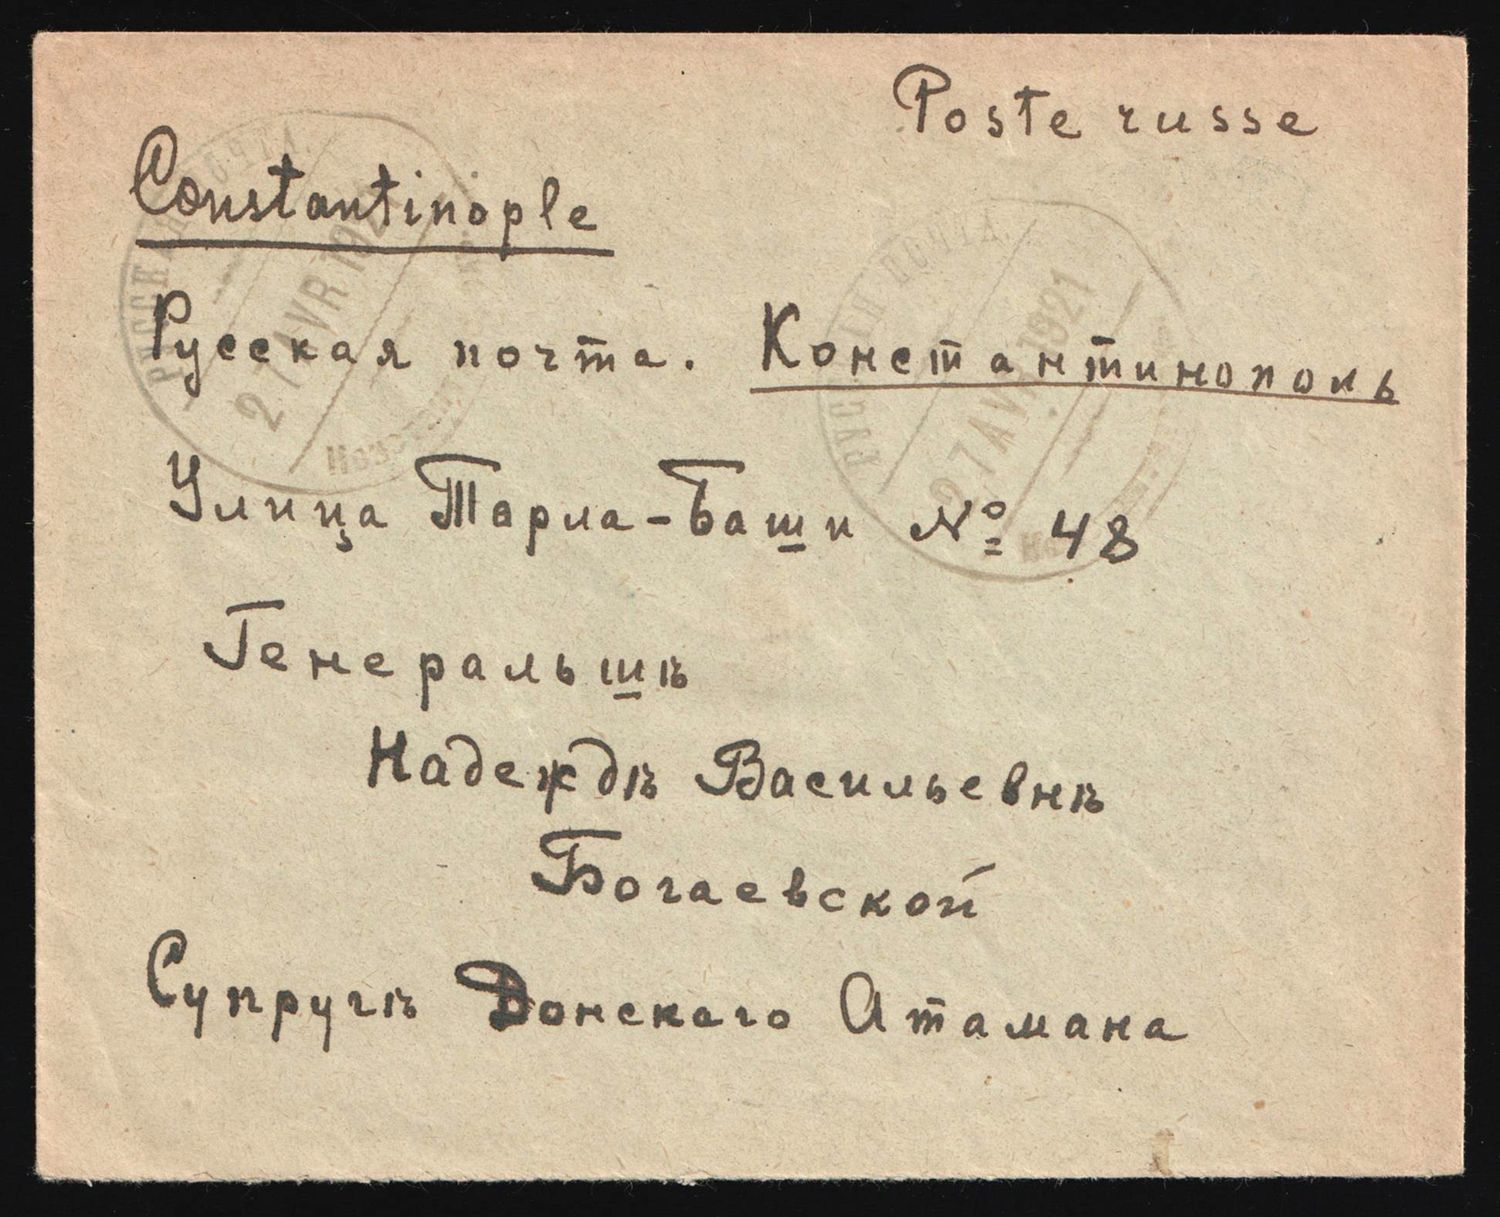 Poste russe
Constantinople
Русская почта. Константинополь
Улица Тарла-Баши № 48
Генеральшѣ
Надеждѣ Васильевнѣ
Богаевской
Супругѣ Донскаго Атамана
РУССКАЯ ПОЧТА.
27 AVR 1921
РУССКАЯ ПОЧТА.
27 AVR 1921